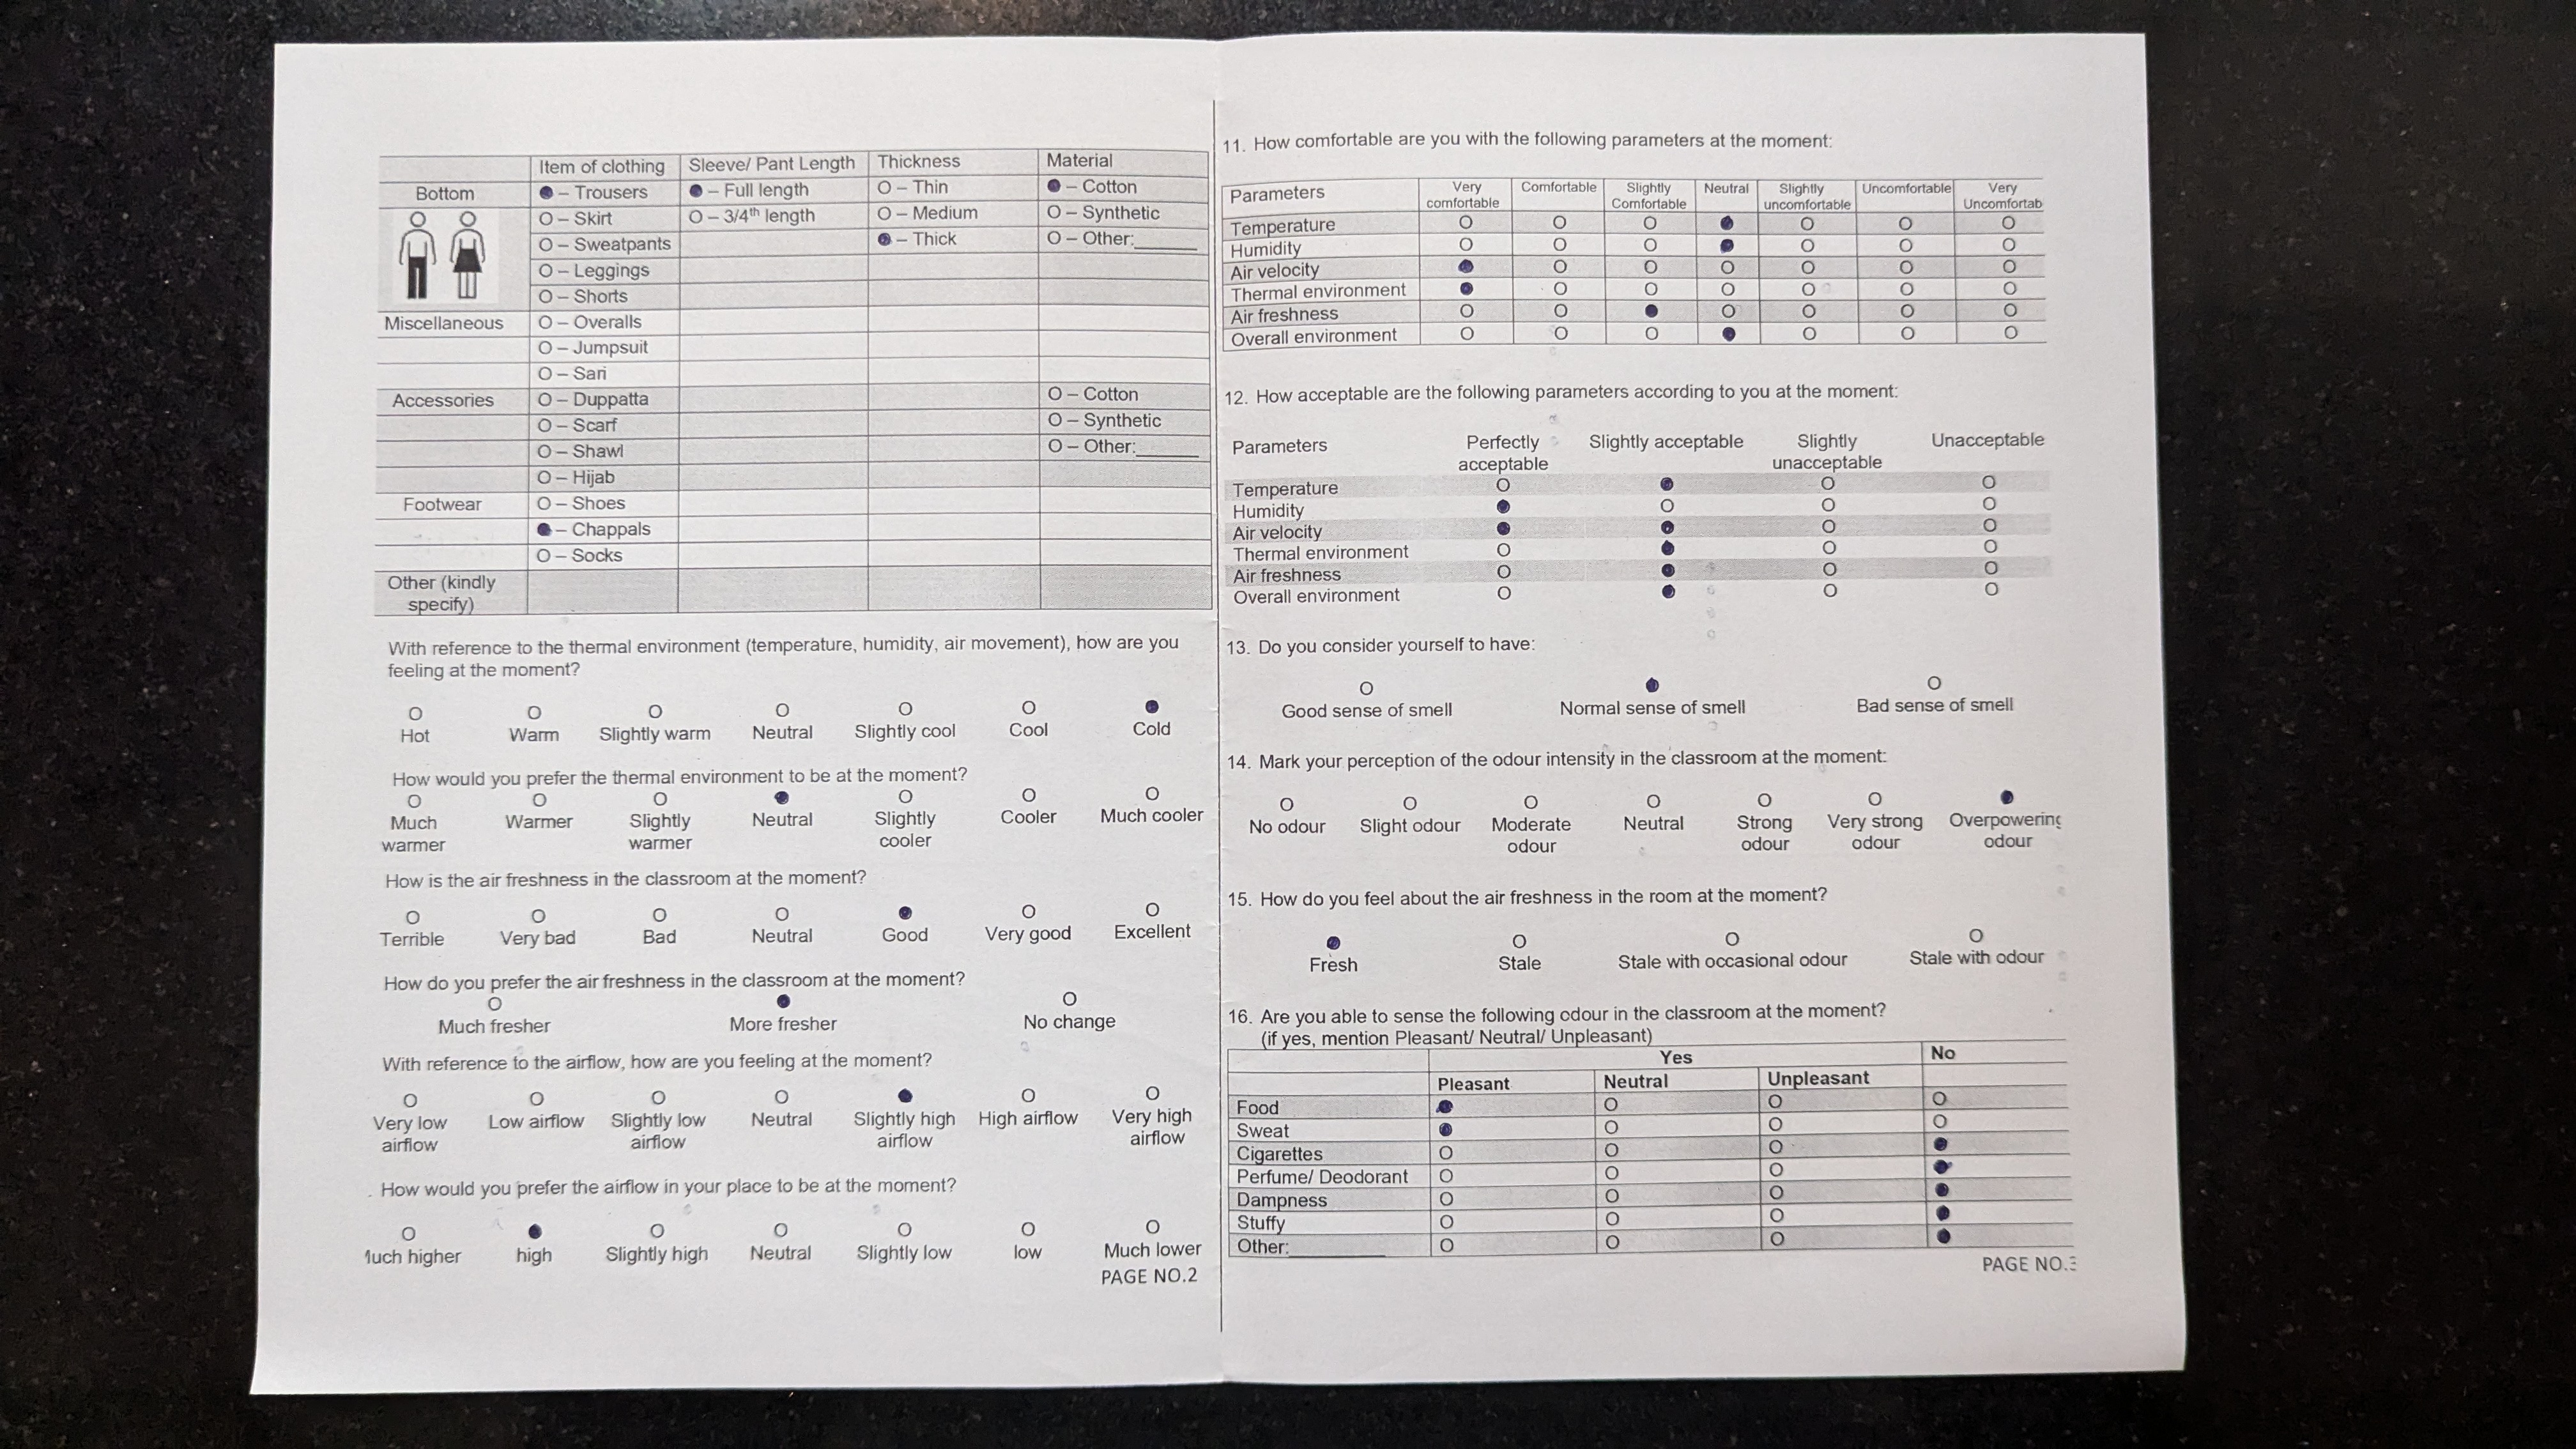 Item of clothing Sleeve/ Pant Length Thickness Material
Bottom O – Trousers O – Full length O – Thin O – Cotton
O – Skirt O – 3/4th length O – Medium O – Synthetic
O – Sweatpants O – Thick O – Other:______
O – Leggings
O – Shorts
Miscellaneous O – Overalls
O – Jumpsuit
O – Sari
Accessories O – Duppatta O – Cotton
O – Scarf O – Synthetic
O – Shawl O – Other:______
O – Hijab
Footwear O – Shoes
O – Chappals
O – Socks
Other (kindly
specify)
With reference to the thermal environment (temperature, humidity, air movement), how are you
feeling at the moment?
Hot Warm Slightly warm Neutral Slightly cool Cool Cold
How would you prefer the thermal environment to be at the moment?
Much Warmer Slightly Neutral Slightly Cooler Much cooler
warmer warmer cooler
How is the air freshness in the classroom at the moment?
Terrible Very bad Bad Neutral Good Very good Excellent
How do you prefer the air freshness in the classroom at the moment?
Much fresher More fresher No change
With reference to the airflow, how are you feeling at the moment?
Very low Low airflow Slightly low Neutral Slightly high High airflow Very high
airflow airflow airflow airflow
How would you prefer the airflow in your place to be at the moment?
higher high Slightly high Neutral Slightly low low Much lower
PAGE NO.2
11. How comfortable are you with the following parameters at the moment:
Parameters Very Comfortable Slightly Neutral Slightly Uncomfortable Very
comfortable Comfortable uncomfortable Uncomfortab
Temperature
Humidity
Air velocity
Thermal environment
Air freshness
Overall environment
12. How acceptable are the following parameters according to you at the moment:
Parameters Perfectly Slightly acceptable Slightly Unacceptable
acceptable unacceptable
Temperature
Humidity
Air velocity
Thermal environment
Air freshness
Overall environment
13. Do you consider yourself to have:
Good sense of smell Normal sense of smell Bad sense of smell
14. Mark your perception of the odour intensity in the classroom at the moment:
No odour Slight odour Moderate Neutral Strong Very strong Overpowering
odour odour odour odour
15. How do you feel about the air freshness in the room at the moment?
Fresh Stale Stale with occasional odour Stale with odour
16. Are you able to sense the following odour in the classroom at the moment?
(if yes, mention Pleasant/ Neutral/ Unpleasant)
Yes No
Pleasant Neutral Unpleasant
Food
Sweat
Cigarettes
Perfume/ Deodorant
Dampness
Stuffy
Other:__________
PAGE NO.